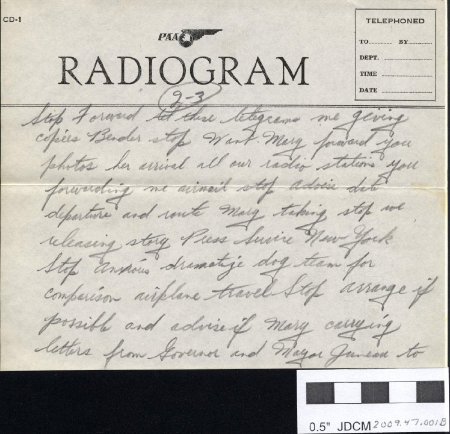 CD-1
PAA
RADIOGRAM
TELEPHONED
TO BY
DEPT.
TIME
DATE
2-3
Stop Forward these telegrams me giving
copies Bender stop Want Mary forward you
photos her arrival all our radio stations you
forwarding me airmail stop advise date
departure and route Mary taking stop we
releasing story Press Service New York
Stop Anxious dramatize dog team for
comparison airplane travel Stop arrange if
possible and advise if Mary carrying
letters from Governor and Mayor Juneau to
0.5" JDCM 2009.47.001B